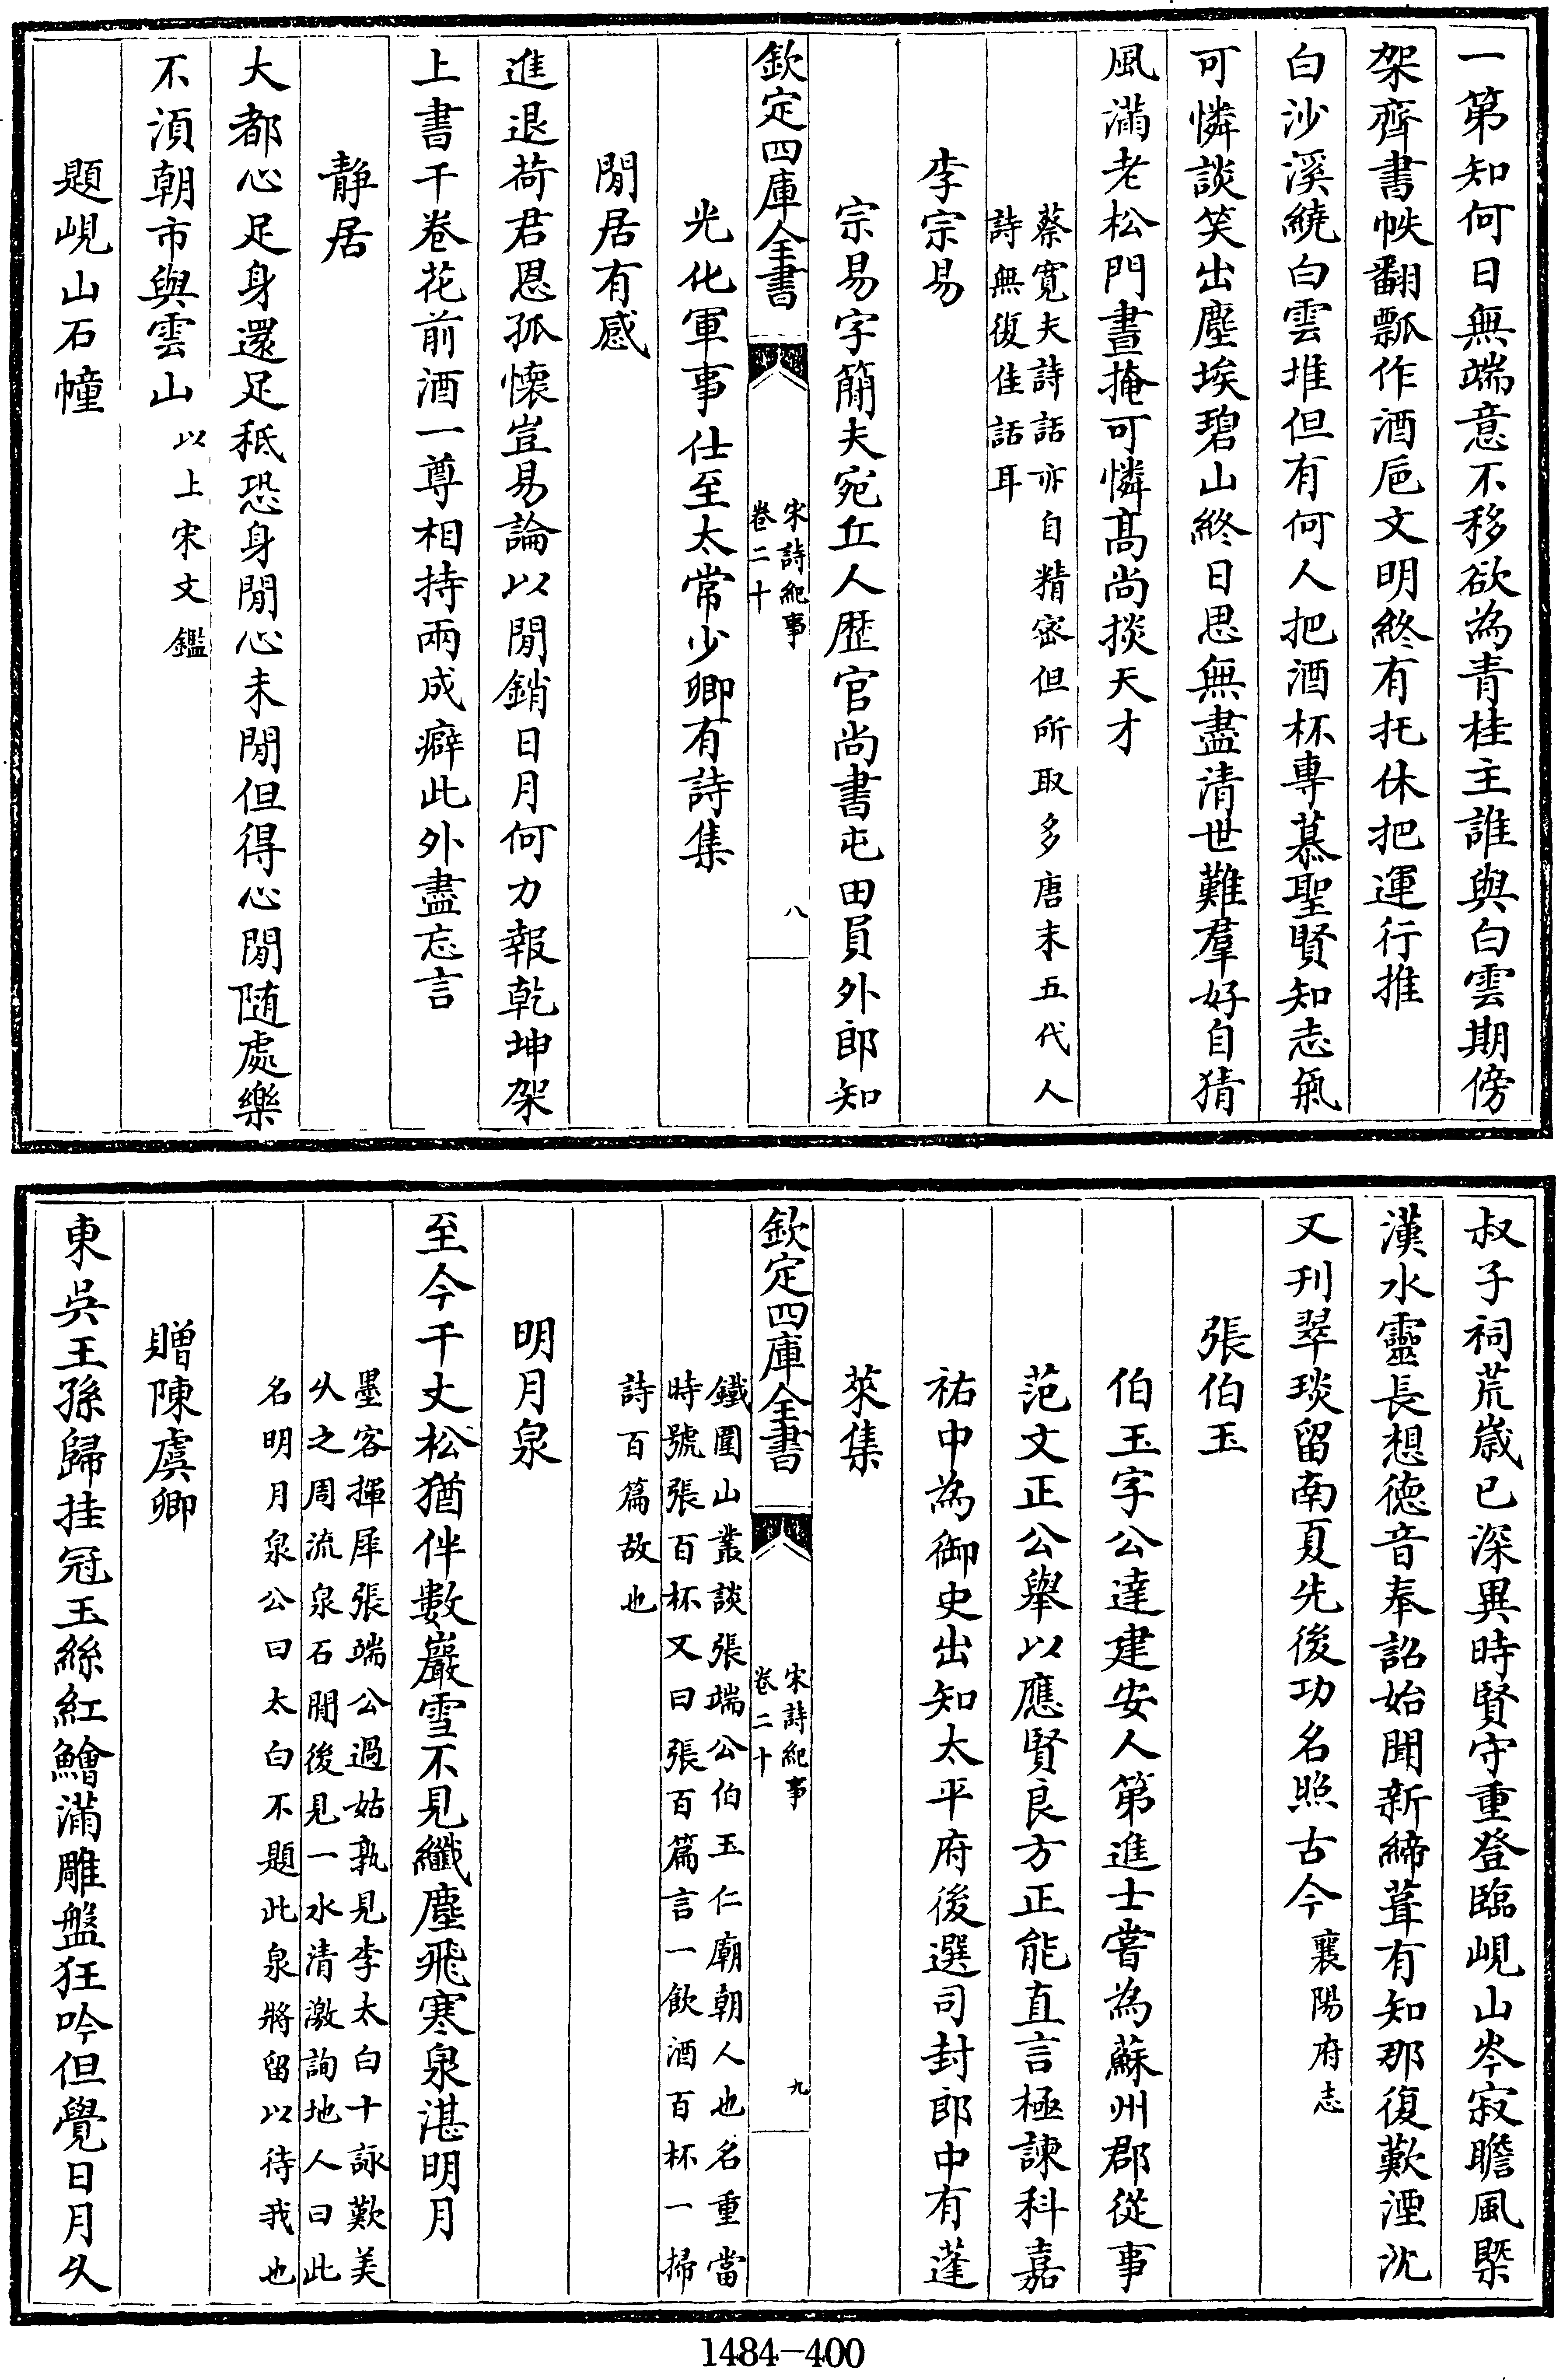 一第知何日無端意不移欲為青桂主誰與白雲期傍
架齊書帙翻瓢作酒巵文明終有托休把運行推
白沙溪繞白雲堆但有何人把酒杯專慕聖賢知志氣
可憐談笑出塵埃碧山終日思無盡清世難羣好自猜
風滿老松門晝掩可憐髙尚掞天才
蔡寛夫詩話亦自精宻但所取多唐末五代人
詩無復佳話耳
李宗易
宗易字簡夫宛丘人歴官尚書屯田員外郎知
欽定四庫全書
宋詩紀事
卷二十
八
光化軍事仕至太常少卿有詩集
閒居有感
進退荷君恩孤懐豈易論以閒銷日月何力報乾坤架
上書千卷花前酒一尊相持兩成癖此外盡忘言
靜居
大都心足身還足秪恐身閒心未閒但得心閒随處樂
不湏朝市與雲山以上宋文鑑
題峴山石幢
叔子祠荒嵗已深異時賢守重登臨峴山岑寂瞻風槩
漢水靈長想徳音奉詔始聞新締葺有知那復歎湮沈
又刊翠琰留南夏先後功名照古今襄陽府志
張伯玉
伯玉字公達建安人第進士嘗為蘇州郡從事
范文正公舉以應賢良方正能直言極諫科嘉
祐中為御史出知太平府後選司封郎中有蓬
萊集
欽定四庫全書
宋詩紀事
卷二十
九
鐵圍山叢談張端公伯玉仁廟朝人也名重當
時號張百杯又曰張百篇言一飲酒百杯一掃
詩百篇故也
明月泉
至今千丈松猶伴數巖雪不見纖塵飛寒泉湛明月
墨客揮犀張端公過姑孰見李太白十詠歎美
乆之周流泉石閒後見一水清激詢地人曰此
名明月泉公曰太白不題此泉將留以待我也
贈陳虞卿
東吳王孫歸挂冠玉絲紅鱠滿雕盤狂吟但覺日月乆
1484-400